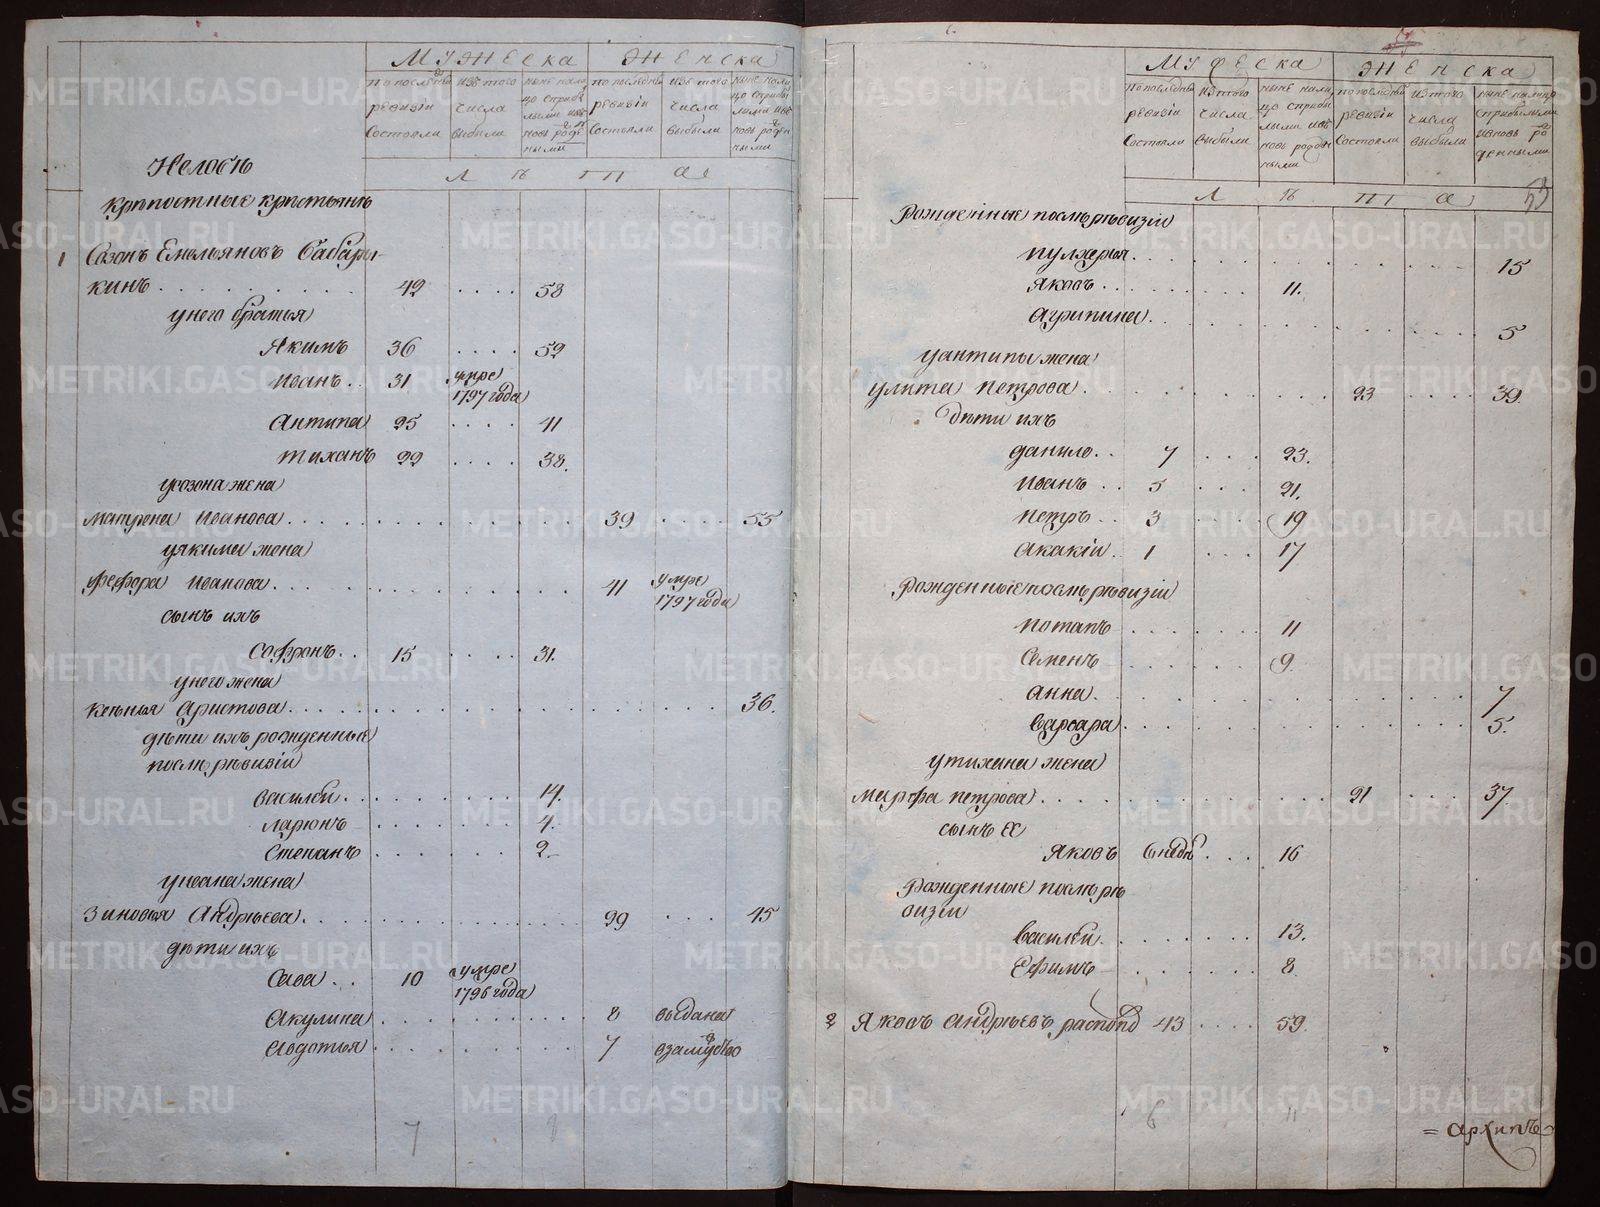 Мужеска Женска
по последней ревизiи состояли
изъ того числа выбыли
ныне налицо с прибылыми и вновь рожденными
по последней ревизiи состояли
изъ того числа выбыли
ныне налицо с прибылыми и вновь рожденными
лѣта
крепостные крестьянѣ
1 Созонъ Емельяновъ Бабари-
кинъ . . . 42 . . . . 58
унего братья
Якимъ 36 . . . . 52
Иванъ . . 31 умре 1797 года
Антипа 25 . . . . 41
тиханъ 22 . . . . 38.
усозона жена
матрена Иванова . . . 39 . . . . 55
уякима жена
Фефора Иванова . . . 41 умре 1797 года
сынъ ихъ
Софронъ . . 15 . . . . 31.
унего жена
ксенья Аристова . . . 36.
дѣти ихъ рожденные
послѣ рѣвизiи
василей . . . 14.
ларионъ . . . 4.
Степанъ . . . 2.
уивана жена
Зиновья Андрѣева . . . 29 . . . 45
дѣти ихъ
Сава . . 10 умре 1796 года
Акулина . . . 8 выданы
Авдотья . . . 7 взамужъство
7
Мужеска Женска
по последней ревизiи состояли
изъ того числа выбыли
ныне налицо с прибылыми и вновь рожденными
по последней ревизiи состояли
изъ того числа выбыли
ныне налицо с прибылыми и вновь рожденными
лѣта
53
Рожденные послѣ рѣвизiи
пулхерья . . . 15
яковъ . . . 11.
Агрипина . . . 5
уантипы жена
улита Петрова . . . 23 . . . . 39.
дѣти ихъ
данило . . 7 . . . 23.
Иванъ . . 5 . . . 21.
Петръ . . 3 . . . 19
Акакiй . . 1 . . . 17
Рожденные послѣ рѣвизiи
Потапъ . . . 11
Семенъ . . . 9.
анна . . . 7
варвара . . . 5.
утихана жена
марфа петрова . . . 21 . . . . 37.
сынъ ее
яковъ 6 недѣ . . . 16
Рожденные послѣ рѣ
визiи
василей . . . 13.
Ефимъ . . . 8
2 Яковъ Андрѣевъ распопъ 43 . . . . 59.
6 11
= Архипъ
METRIKI.GASO-URAL.RU